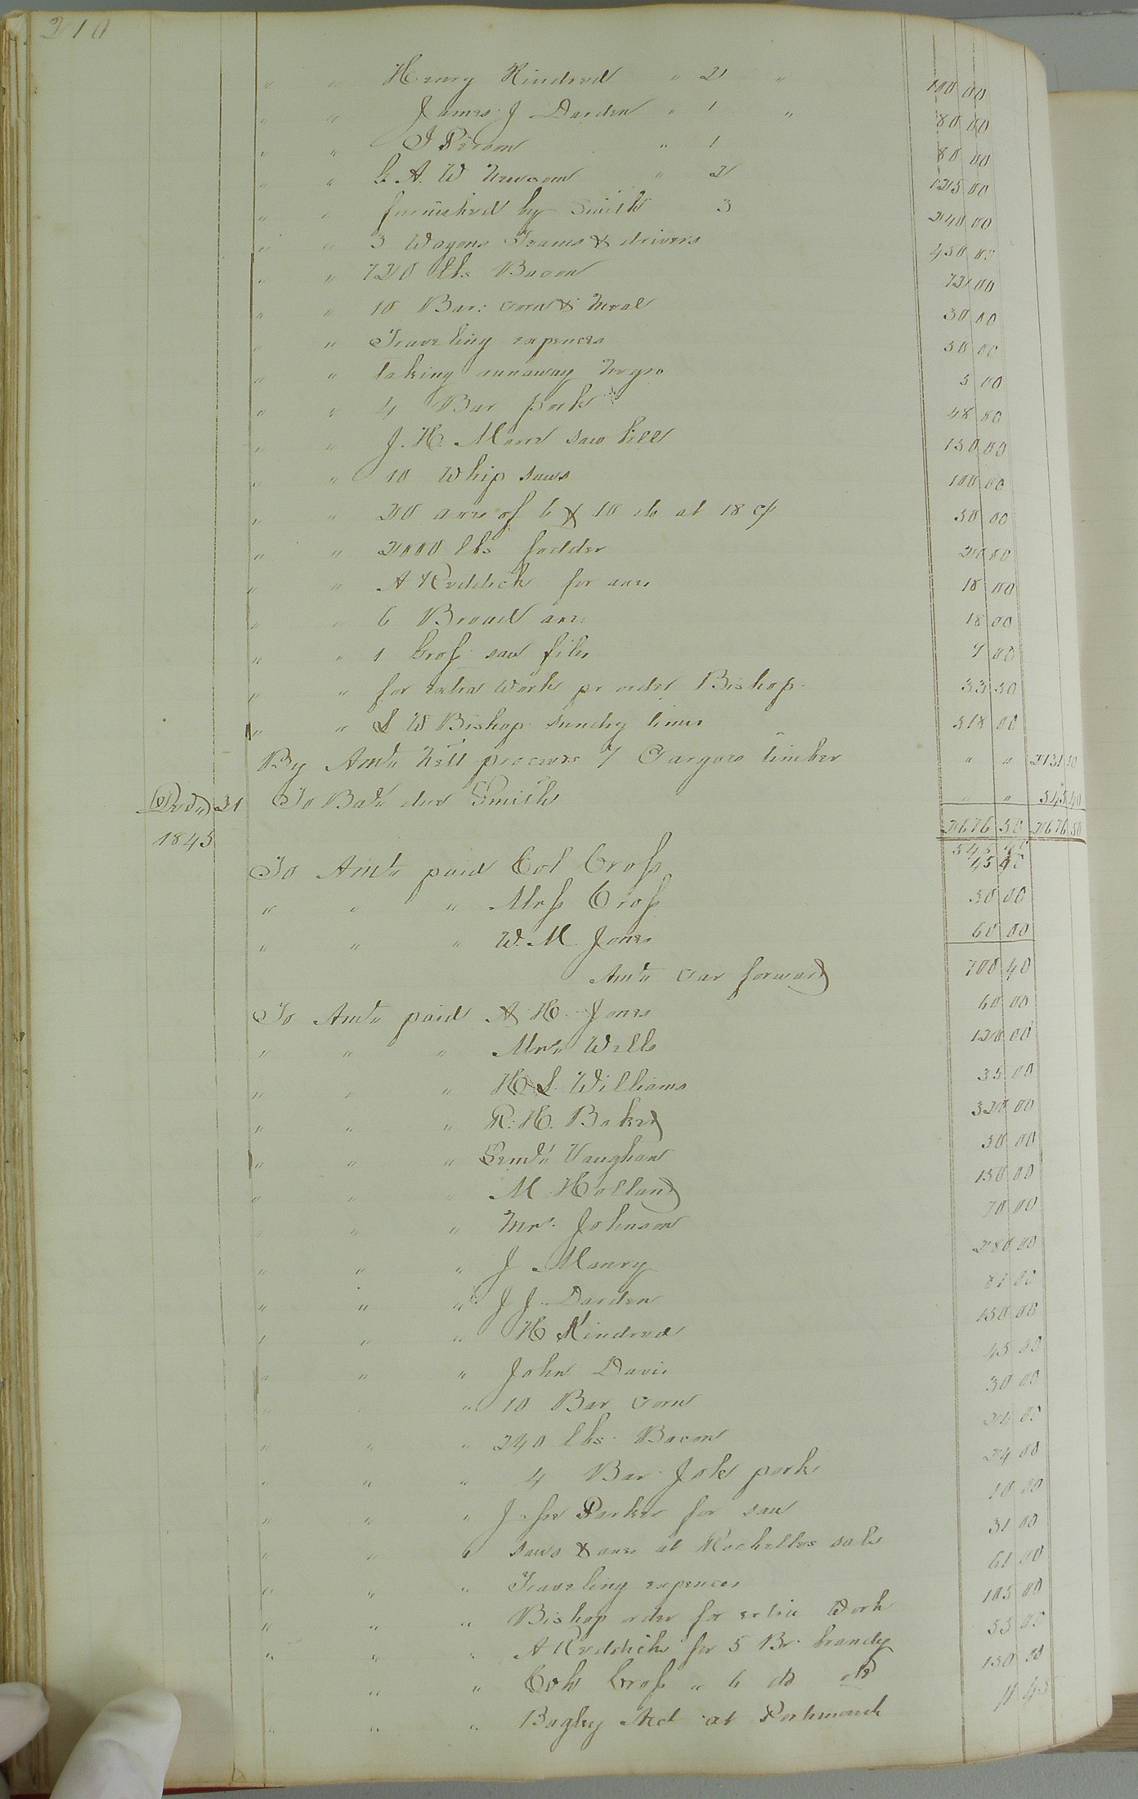 210
" " Henry Kindred " 2 " 100 00
" " James J Darden " 1 " 80 00
" " J " 1 80 00
" " A. W Newsom " 2 125 00
" " furnished by Smith 3 240 00
" " 3 Wagons Teams & drivers 450 00
" " 720 lbs Bacon 72 00
" " 10 Bar: corn & meal 30 00
" " Traveling expences 50 00
" " taking runaway Negro 5 00
" " 4 Bar pork 48 00
" " J. H. saw bill 150 00
" " 10 Whip saws 100 00
" " 20 axes of 6 & 10 do at 18 50 00
" " 2000 lbs fodder 20 00
" " A Reddick for axes 18 00
" " 6 Broad axes 18 00
" " 1 Groſs saw files 7 00
" " for extra work pr order Bishop 33 50
" " L W Bishop sundry times 518 00
By Amt. Nett proceeds 7 Cargoes timber " " 2131 10
Decr. 31 To Balc. due Smith " " 545 40
2676 50 2676 50
1845 545 40
To Amt. paid Col Croſs 45 00
" " " Mrſs Croſs 50 00
" " " W. M Jones 60 00
Amt. car forward 700 40
To Amt. paid A. H. Jones 60 00
" " " Mrs. Wells 120 00
" " " H L Williams 35 00
" " " R. H. Baker 320 00
" " " Vaughan 50 00
" " " M Holland 150 00
" " " Mr. Johnson 70 00
" " " J Maury 280 00
" " " J J Darden 80 00
" " " H Kindred 150 00
" " " John Davis 45 00
" " " 10 Bar corn 30 00
" " " 240 lbs Bacon 24 00
" " " 4 Bar pork 24 00
" " " Parker for saw 10 00
" " " Saws & axes at Rochelles sale 31 00
" " " Traveling expences 61 00
" " " Bishop order for extra Work 105 00
" " " A Reddick for 5 Br. brandy 55 00
" " " Col Croſs " 6 do do 150 00
" " " at Portsmouth